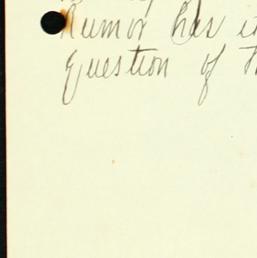 Rumor has i
Question of